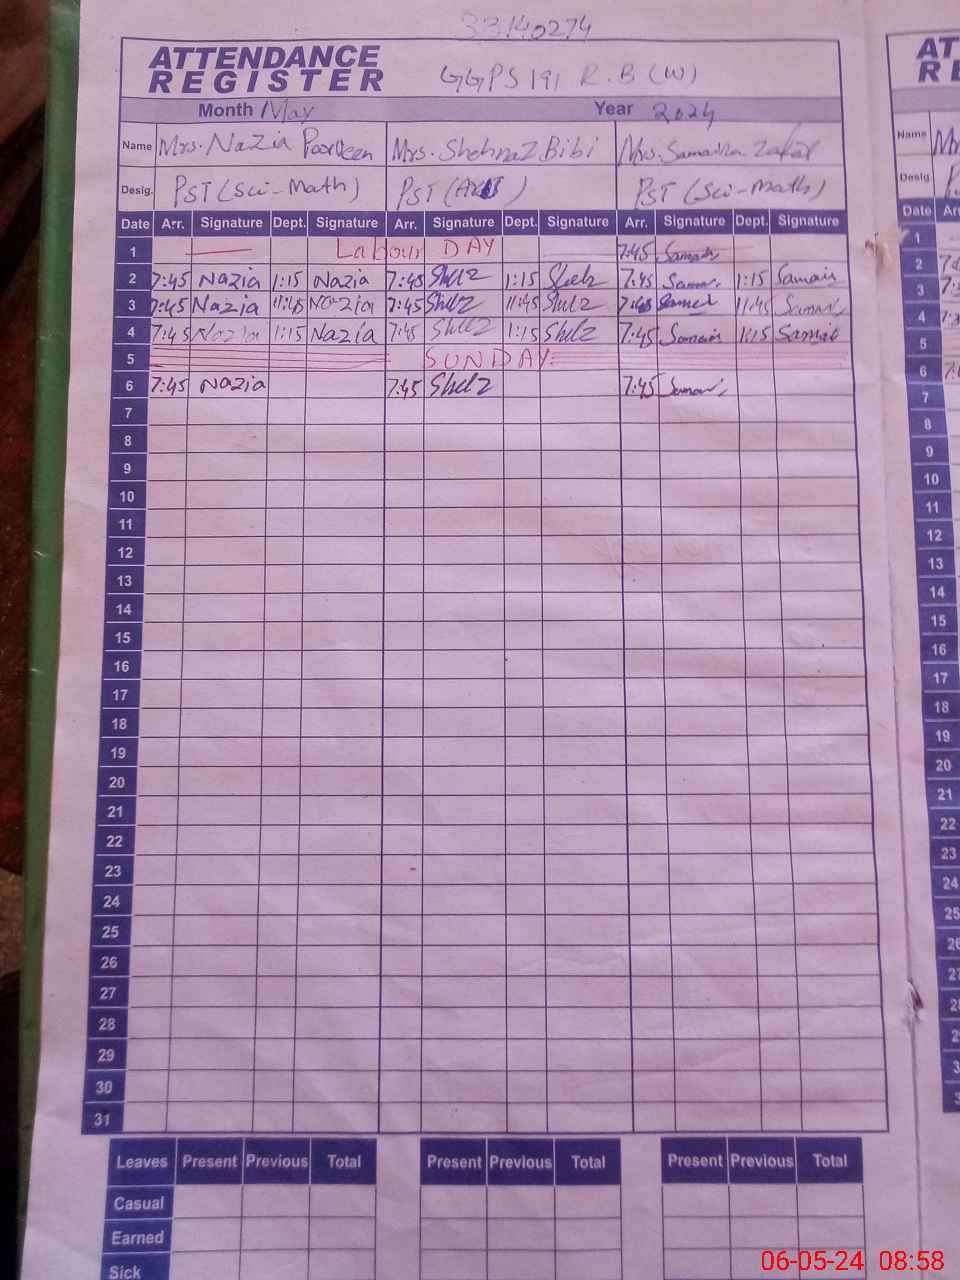 33140274
ATTENDANCE
REGISTER
GGPS 191 R.B (W)
Month May Year 2024
Name Mrs. Nazia Parveen Mrs. Shehnaz Bibi Mrs. Samaira Zafar
Desig. PST (Sci-Math) PST (Art) PST (Sci-Math)
Date Arr. Signature Dept. Signature Arr. Signature Dept. Signature Arr. Signature Dept. Signature
1 Labour DAY 7:45
2 7:45 Nazia 1:15 Nazia 7:45 Shelz 1:15 Shelz 7:45 1:15
3 7:45 Nazia 11:45 Nazia 7:45 Shelz 11:45 Shelz 7:45 11:45
4 7:45 Nazia 1:15 Nazia 7:45 Shelz 1:15 Shelz 7:45 1:15
5 SUNDAY
6 7:45 Nazia 7:45 Shelz 7:45
7
8
9
10
11
12
13
14
15
16
17
18
19
20
21
22
23
24
25
26
27
28
29
30
31
Leaves Present Previous Total Present Previous Total Present Previous Total
Casual
Earned
Sick
AT
RE
Name
Desig.
Date
1
2
3
4
5
6
7
8
9
10
11
12
13
14
15
16
17
18
19
20
21
22
23
24
25
26
27
06-05-24 08:58